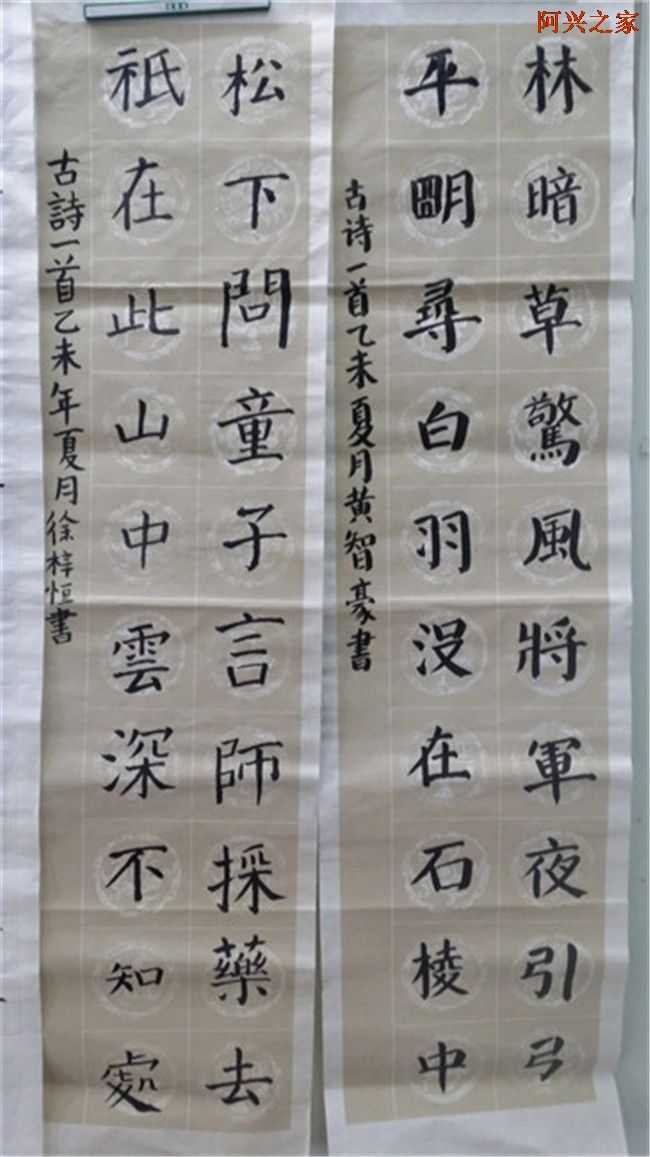 阿兴之家
林暗草驚風將軍夜引弓
平明尋白羽没在石棱中
古诗一首乙未夏月黄智豪書
松下問童子言師採藥去
祇在此山中雲深不知處
古詩一首乙未年夏月徐梓恒書